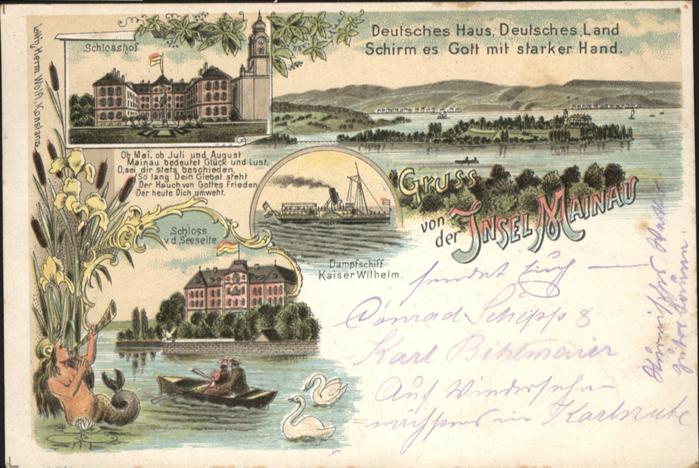 Deutsches Haus, Deutsches Land
Schirm es Gott mit starker Hand.
Schlosshof
Lith. Herm. Wolf, Konstanz
Ob Mai, ob Juli und August
Mainau bedeutet Glück und Lust,
O, sei dir stets beschieden,
So lang Dein Giebel steht
Der Hauch von Gottes Frieden
Der heute Dich umweht.
Gruss
von der Insel Mainau
Schloss
v. d. Seeseite
Dampfschiff
Kaiser Wilhelm.
sendet Euch
Conrad Schepp &
Karl Bihlmaier
Auf Wiedersehen
nächstens in Karlsruhe